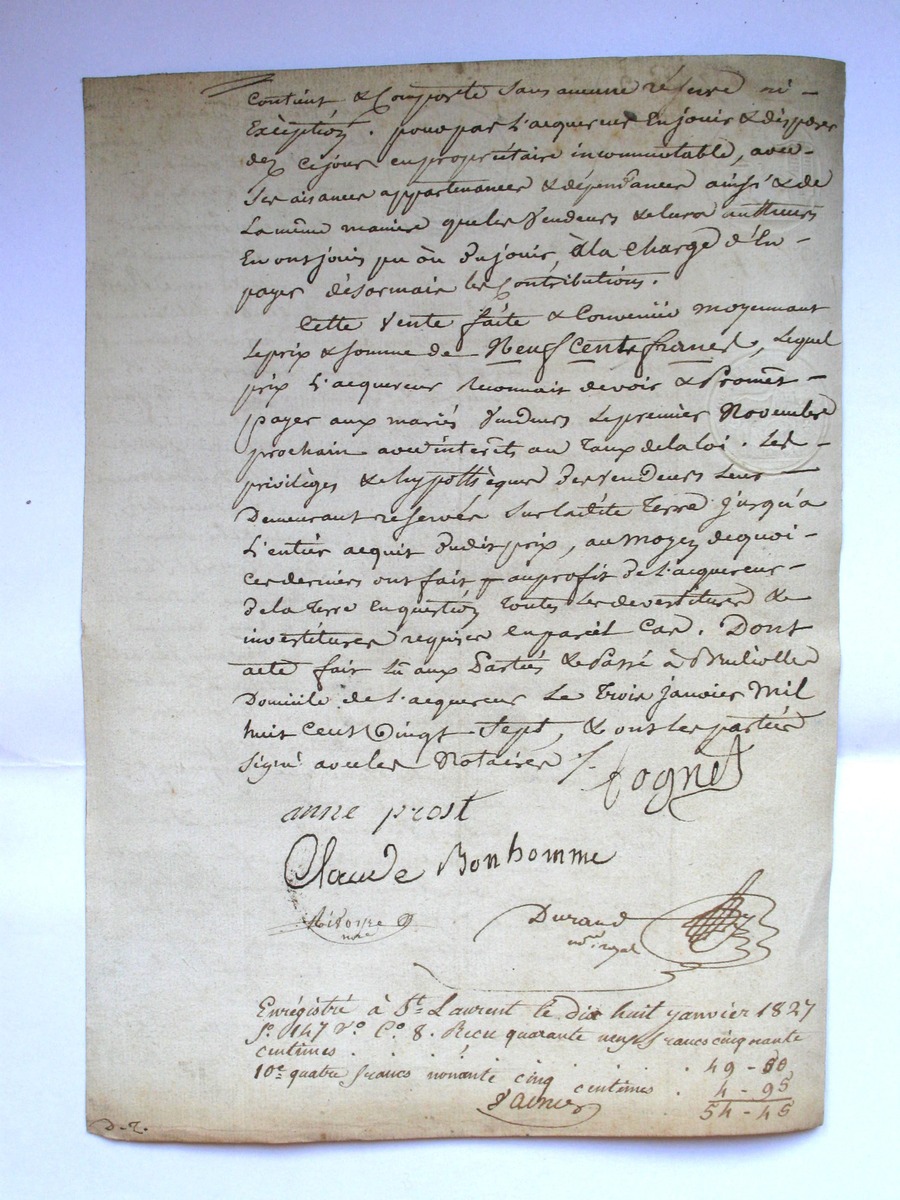 Contient & Comporte Sans aucune réserve ni –
Exèption. pour par L'acquereur En jouir & disposer
dez ce jour en propriétaire incommutable, avec –
Ses aisances appartenances & dépendances ainsi & de
La même maniere que les Vendeurs & leurs autheurs
En ont joui pu ou du jouir, à la Charge d'En –
payer désormais les Contributions.
Cette Vente faite & Convenüe moyennant
Le prix & Somme de Neuf Cents francs, Lequel
prix L'acquereur reconnait devoir & Promet –
payer aux mariés Vendeurs Le premier Novembre
prochain avec intérets au Taux de la loi. Les –
privilèges & hypothèques des Vendeurs Leur –
Demeurant reservés Sur la dite Terre jusqu'a
L'entier acquit dudit prix, au moyez de quoi –
ces derniers ont fait au profit de L'acquereur –
de la Terre En question Toutes Les devestitures &
investitures requises en pareil Cas. Dont
acte fait Lû aux Parties & Passé à
Domicile de L'acquereur Le Trois janvier Mil
huit Cent Vingt Sept, & ont les parties
Signé avec les Notaires /. Pognet
anne prost
Claude Bonhomme
nore
Durand
nore royal
Enrégistré à St Laurent le dix huit janvier 1827
fo. 147 Vo. Co. 8. Recu quarante neuf francs cinquante
centimes . . . . . 49 - 50
10e quatre francs nonante cinq centimes . 4 - 95
54 - 45
D. T.